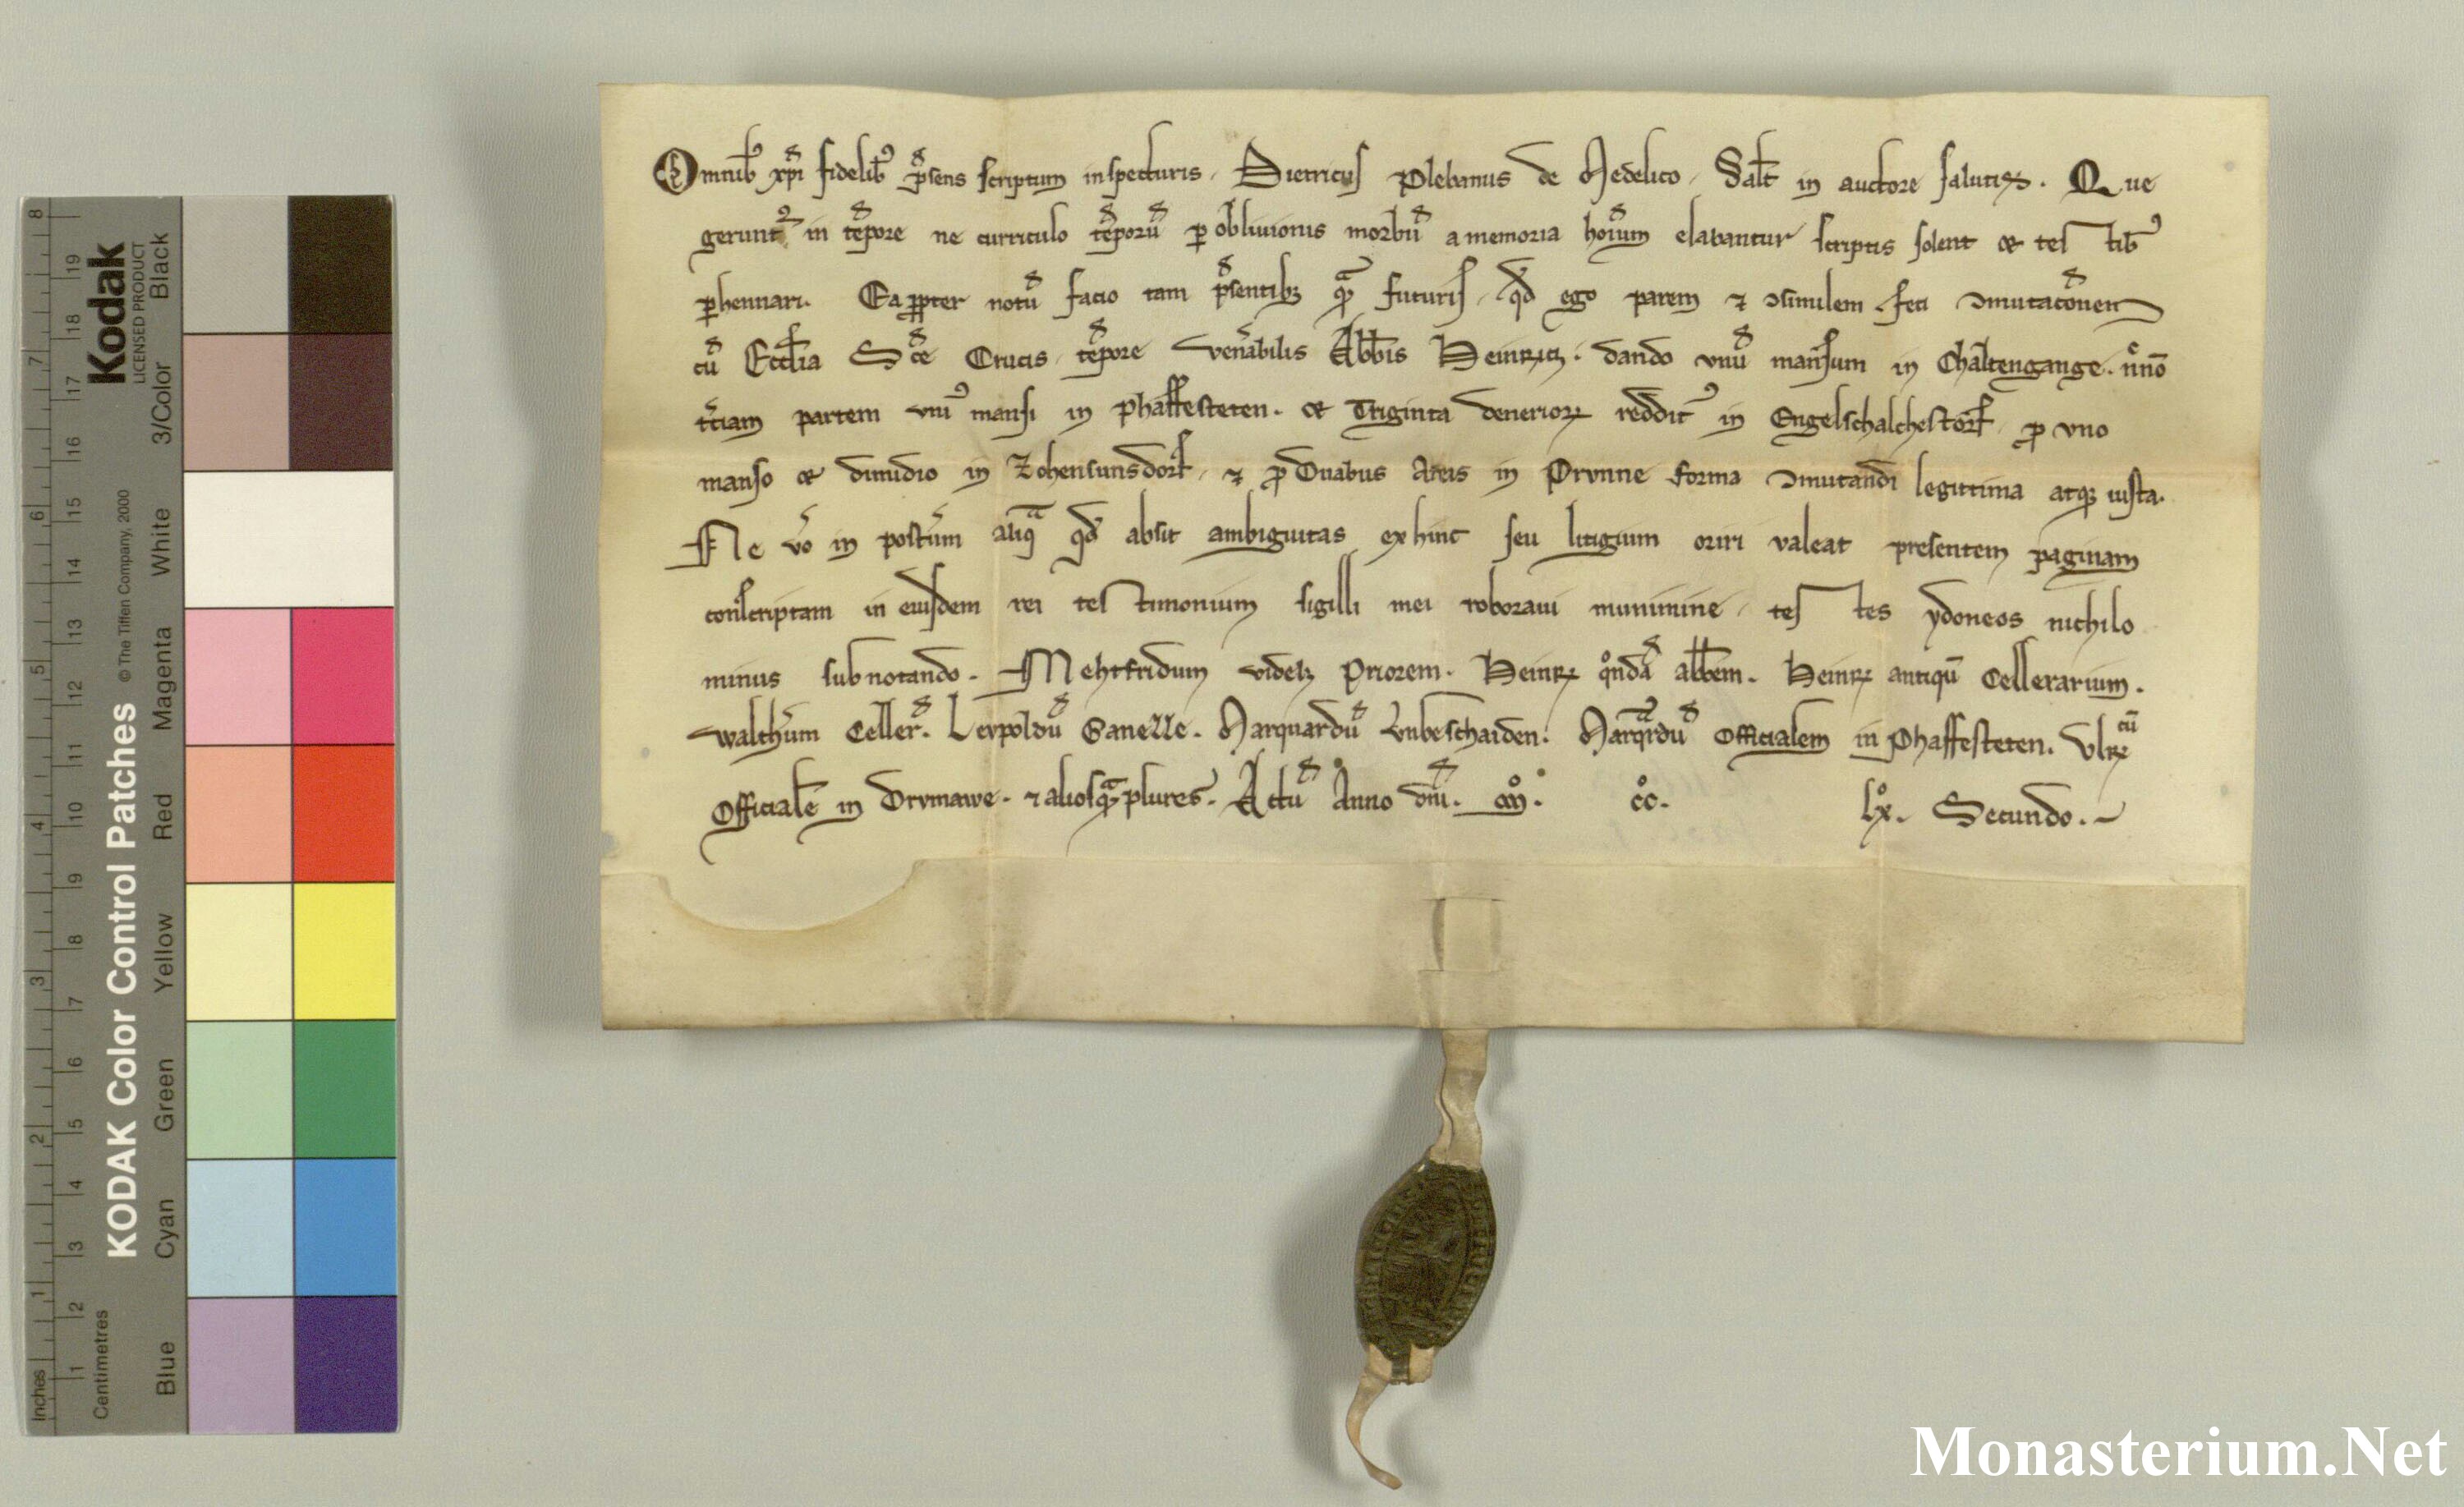 Omnib⁹ xp̄i fidelib⁹ p̄sens scriptum inspecturis. Dietricus Plebanus de Medelico. Salt̄ in auctore salutis. Que
gerunt᷑ in tēpore ne curriculo tēporū ꝑ obliuionis morbū a memoria hoīum elabantur scriptis solent et testib⁹
ꝑhennari. Ea ꝓpter notū facio tam p̄sentibꝫ qᵃꝫ futuris. qd̄ ego parem ⁊ ↄsimilem feci ↄmutac̄onem
cū Eccl̄ia Sc̄e Crucis. tēpore ven̄abilis Abb̄is Heinrici. dando vnū mansum in Chaltengange. n̄no
t̄ciam partem vni⁹ mansi in Phaffesteten. et Triginta denarioꝝ reddit⁹ in Engelschalchestorf. ꝓ vno
manso et dimidio in Zohensunsdorf. ⁊ ꝓ Duabus Areis in Prvnne forma ↄmutandi legittima atqꝫ iusta.
Ne v̄o in post̄um aliqᵃ qd̄ absit ambiguitas exhinc seu litigium oriri valeat presentem paginam
conscriptam in eiusdem rei testimonium sigilli mei roboraui munimine. testes ydoneos nichilo
minus subnotando. Mehtfridum videlꝫ Priorem. Heinꝝ qͦndā abb̄em. Heinꝝ antiqū Cellerarium.
walth̄um Celler̄. Levpoldū Sanelle. Marquardū Vnbeschaiden. Marqᵃrdū Officialem in Phaffesteten. Vlrcū
Officialē in Drvmawe. ⁊ aliosqᵃꝫ plures. Actū Anno dn̄i. mͦ. cͦc. lxͦ. Secundo.
8 7 6 5 4 3 2 1 Inches
19 18 17 16 15 14 13 12 11 10 9 8 7 6 5 4 3 2 1 Centimetres
Kodak
LICENSED PRODUCT
KODAK Color Control Patches © The Tiffen Company, 2000
Black
3/Color
White
Magenta
Red
Yellow
Green
Cyan
Blue
Monasterium.Net